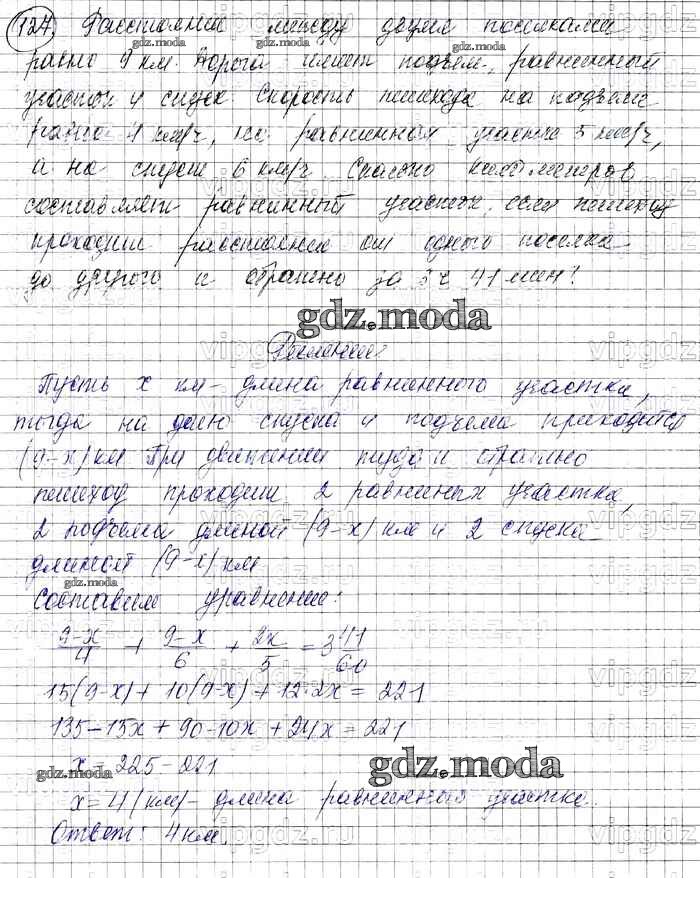 127. Расстояние между двумя поселками
равно 9 км. Дорога имеет подъем, равнинный
участок и спуск. Скорость пешехода на подъеме
равна 4 км/ч, на равнинном участке 5 км/ч,
а на спуске 6 км/ч. Сколько километров
составляет равнинный участок, если пешеход
проходит расстояние от одного поселка
до другого и обратно за 3 ч 41 мин?
gdz.moda
Решение:
Пусть x км – длина равнинного участка,
тогда на долю спуска и подъема приходится
(9-x) км При движении туда и обратно
пешеход проходит 2 равнинных участка,
2 подъема длиной (9-x) км и 2 спуска
длиной (9-x) км
gdz.moda
Составим уравнение:
9-x/4 + 9-x/6 + 2x/5 = 3 41/60
15(9-x) + 10(9-x) + 12·2x = 221
135-15x + 90-10x + 24x = 221
x = 225-221
gdz.moda gdz.moda
x = 4 (км) – длина равнинный участка.
Ответ: 4 км.